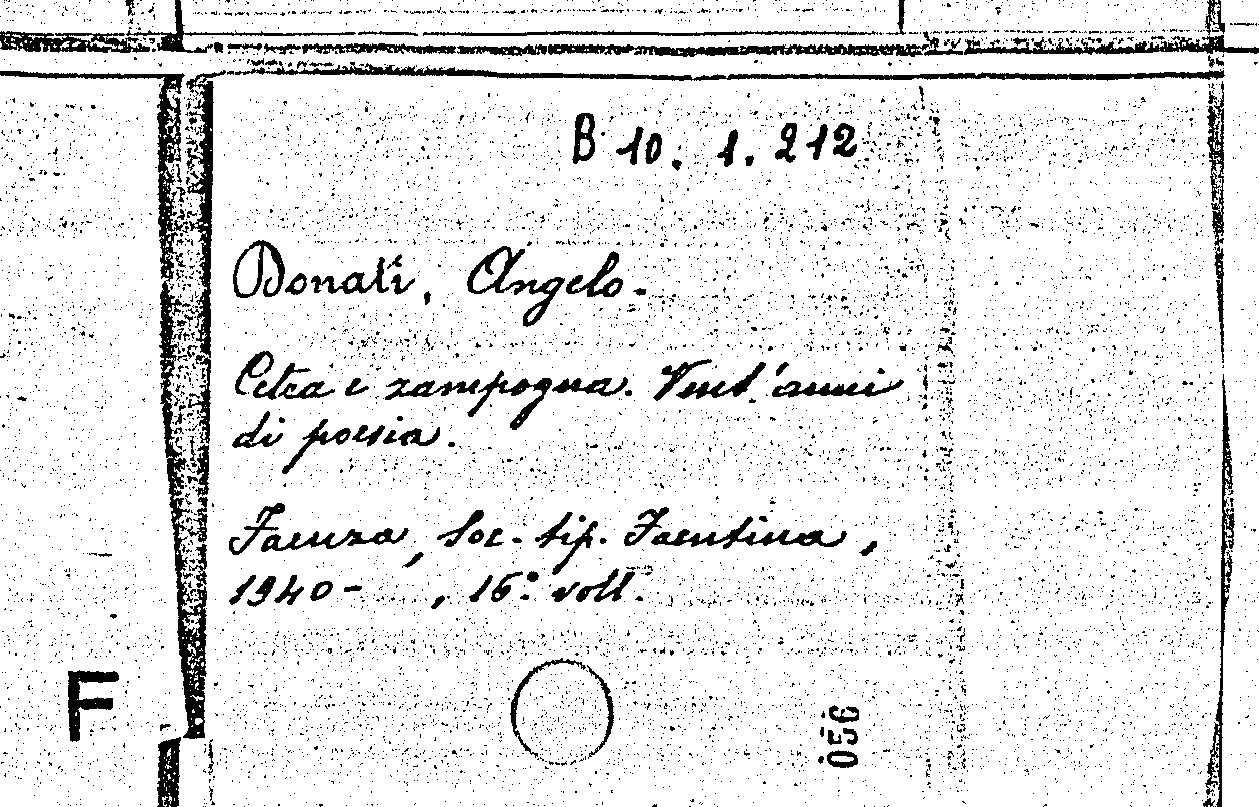 B 10. 1. 212
Donati, Angelo.
Cetra e zampogna. Vent'anni
di poesia.
Faenza, Soc. tip. Faentina,
1940- , 16º voll.
F
056